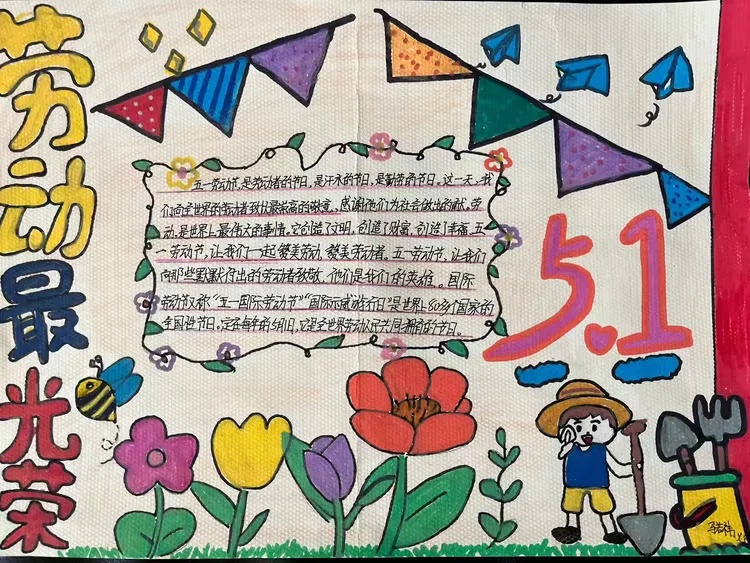 劳动最光荣
五一劳动节,是劳动者的节日,是汗水的节日,是勤劳的节日,这一天,我
们向全世界的劳动者致以最崇高的敬意,感谢他们为社会做出的贡献,劳
动,是世界上最伟大的事情,它创造了文明,创造了财富,创造了幸福,五
一劳动节,让我们一起赞美劳动,赞美劳动者。五一劳动节,让我们
向那些默默付出的劳动者致敬,他们是我们的英雄。国际
劳动节又称“五一国际劳动节”“国际示威游行日”是世界上80多个国家的
全国性节日,定在每年的5月1日,它是全世界劳动人民共同拥有的节日。
5.1